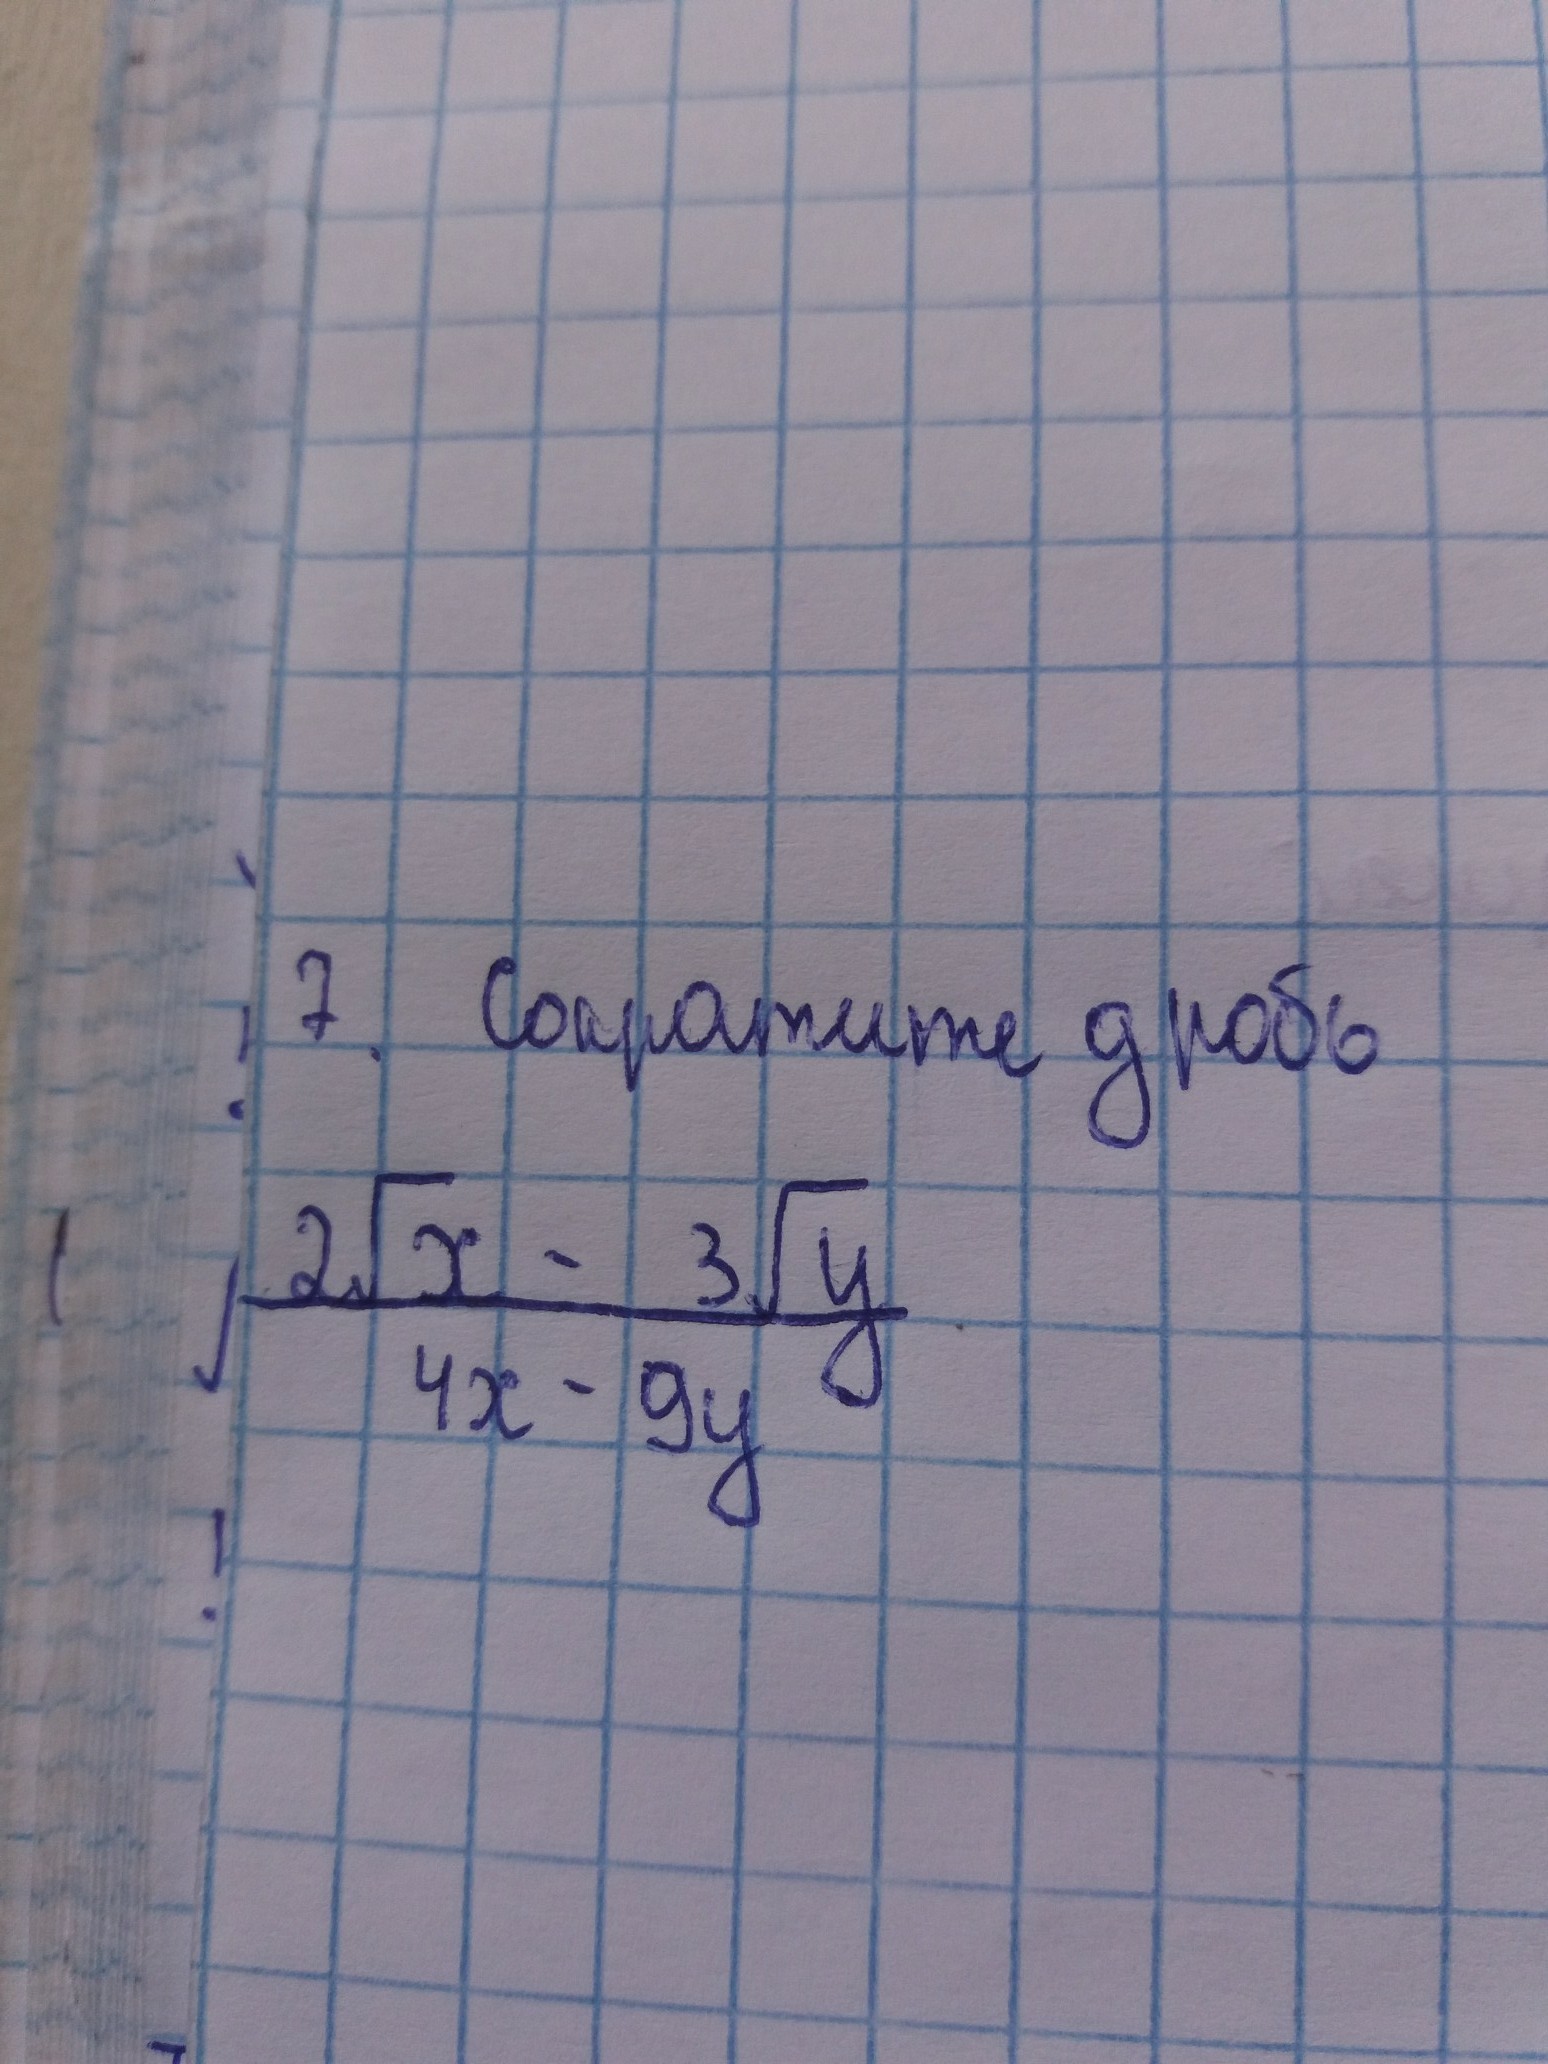 7. Сократите дробь
2√x - 3√y
4x - 9y